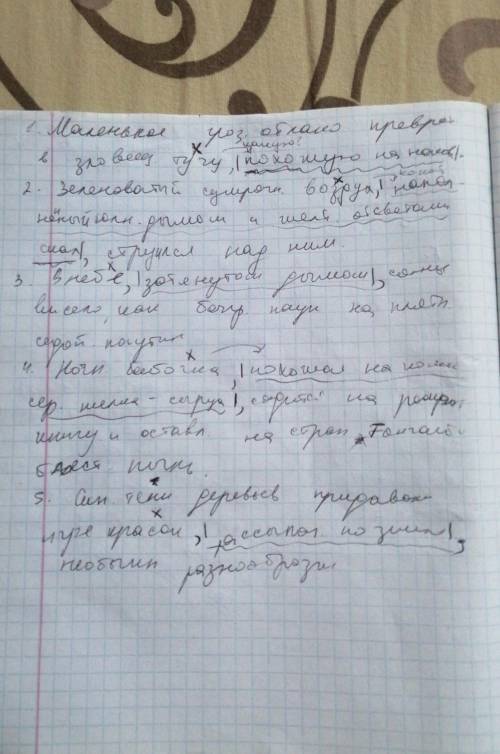 1. Маленькое гроз. облако преврат.
в зловещ тучу, похожую на наков.
2. Зеленоватый сумрачн воздух, напол-
нённый юлк. дымом и желт. отсветами
скал, струился над ним.
3. В небе, затянутом дымом, солнце
висело, как бачр. паук на плотн
седой паутин
4. Ночн бабочка, похожая на
сер. шелка-сырца, садится на
книгу и оставл. на стран тончайш
блест пыль.
5. Син тени деревьев придавали
игре красок, рассыпан по земле,
необыкн разнообразие